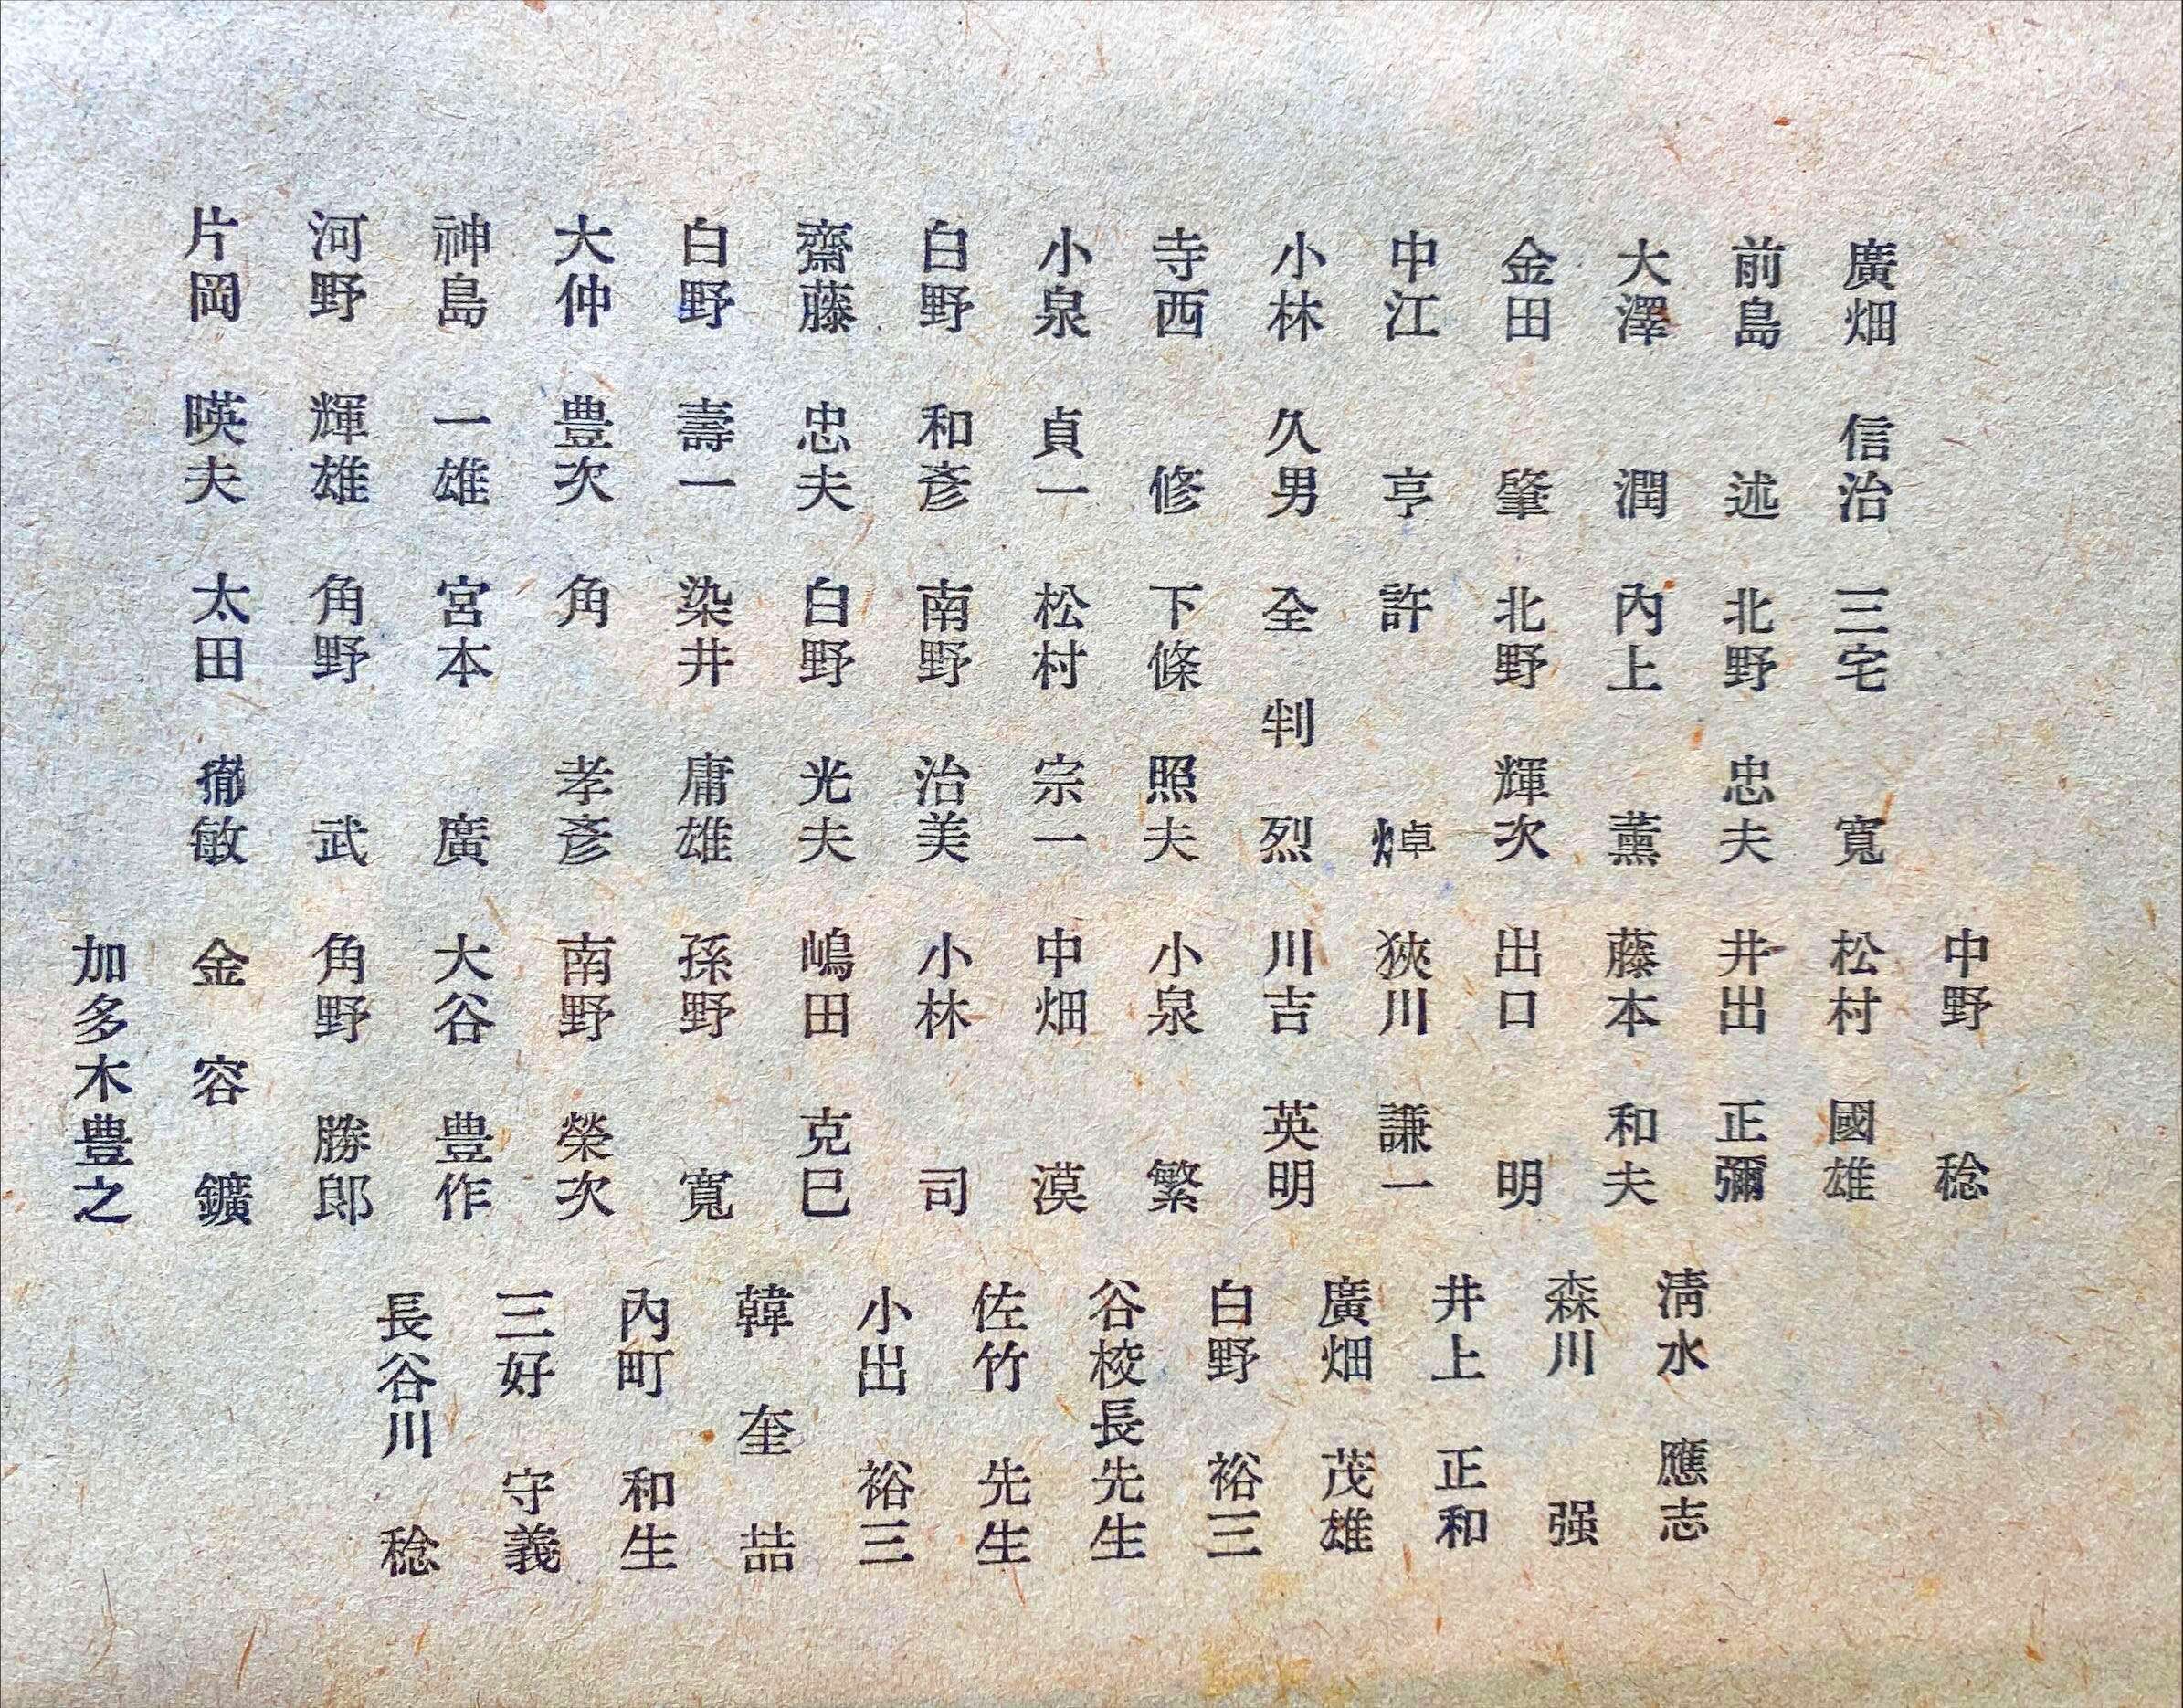 廣畑 信治
前島 述
大澤 潤
金田 肇
中江 亨
小林 久男
寺西 修
小泉 貞一
白野 和彥
齋藤 忠夫
白野 壽一
大仲 豊次
神島 一雄
河野 輝雄
片岡 暎夫
三宅 寬
北野 忠夫
內上 薰
北野 輝次
許 焯
全 判 烈
下條 照夫
松村 宗一
南野 治美
白野 光夫
染井 庸雄
角 孝彥
宮本 廣
角野 武
太田 徹敏
中野 稔
松村 國雄
井出 正彌
藤本 和夫
出口 明
狹川 謙一
川吉 英明
小泉 繁
中畑 漠
小林 司
嶋田 克巳
孫野 寬
南野 榮次
大谷 豊作
角野 勝郎
金 容 鑛
加多木豊之
淸水 應志
森川 强
井上 正和
廣畑 茂雄
白野 裕三
谷校長先生
佐竹 先生
小出 裕三
韓 奎 喆
內町 和生
三好 守義
長谷川 稔